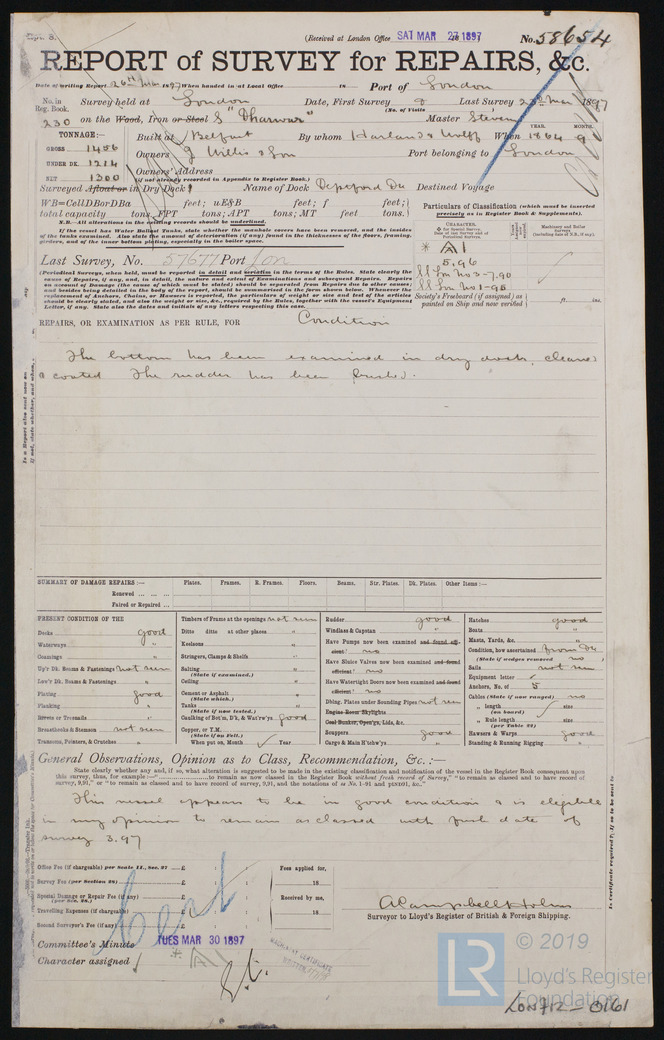 Rpt. 8.
(Received at London Office SAT MAR 27 1897)
No. 58654
REPORT of SURVEY for REPAIRS, &c.
Date of writing Report 26th Mar 1897 When handed in at Local Office 18 Port of London
No. in Reg. Book. Survey held at London Date, First Survey Last Survey 23rd Mar 1897
(No. of Visits
230 on the Wood, Iron or Steel S "Dharwar" Master Stevens
TONNAGE:— Built at Belfast By whom Harland & Wolff When 1864 9
YEAR. MONTH.
GROSS 1456 Owners J Willis & Son Port belonging to London
UNDER DK. 1214 Owners' Address
(if not already recorded in Appendix to Register Book.)
NET 1300
Surveyed Afloat or in Dry Dock? Name of Dock Deptford Destined Voyage
WB=CellDBorDBa feet; uE&B feet; f feet;
total capacity tons, FPT tons; APT tons; MT feet tons.
N.B.—All alterations in the existing records should be underlined.
If the vessel has Water Ballast Tanks, state whether the manhole covers have been removed, and the insides
of the tanks examined. Also state the amount of deterioration (if any) found in the thicknesses of the floors, framing,
girders, and of the inner bottom plating, especially in the boiler space.
Particulars of Classification (which must be inserted
precisely as in Register Book & Supplements).
CHARACTER.
Machinery and Boiler Surveys
(including date of N.B., if any).
A1
5,96
SS Lon No 2-7.90
SS Lon No 1-95
Society's Freeboard (if assigned) as
painted on Ship and now verified ft. ins.
Last Survey, No. 57677 Port Lon
(Periodical Surveys, when held, must be reported in detail and seriatim in the terms of the Rules. State clearly the
causes of Repairs, if any, and, in detail, the nature and extent of Examinations and subsequent Repairs. Repairs
on account of Damage (the cause of which must be stated) should be separated from Repairs due to other causes;
and besides being detailed in the body of the report, should be summarised in the form shown below. Whenever the
replacement of Anchors, Chains, or Hawsers is reported, the particulars of weight or size and test of the articles
should be clearly stated, and also the weight or size, &c., required by the Rules, together with the vessel's Equipment
Letter, if any. State also the dates and initials of any letters respecting this case.
REPAIRS, OR EXAMINATION AS PER RULE, FOR Condition
The bottom has been examined in dry dock, cleaned
& coated The rudder has been bushed.
SUMMARY OF DAMAGE REPAIRS:— Plates. Frames. R. Frames. Floors. Beams. Str. Plates. Dk. Plates. Other Items:—
Renewed
Faired or Repaired
PRESENT CONDITION OF THE
Decks good
Waterways "
Coamings "
Up'r Dk. Beams & Fastenings not seen
Low'r Dk. Beams & Fastenings "
Plating good
Planking "
Rivets or Treenails "
Breasthooks & Stemson not seen
Transoms, Pointers, & Crutches "
Timbers of Frame at the openings not seen
Ditto ditto at other places "
Keelsons "
Stringers, Clamps & Shelfs "
Salting "
(State if examined.)
Ceiling "
Cement or Asphalt "
(State which.)
Tanks "
(State if now tested.)
Caulking of Bot'm, D'k, & Wat'rw'ys good
Copper, or Y.M.
(State if on Felt.)
When put on, Month Year
Rudder good
Windlass & Capstan "
Have Pumps now been examined and found efficient? no
Have Sluice Valves now been examined and found efficient? no
Have Watertight Doors now been examined and found efficient? no
Dblng. Plates under Sounding Pipes not seen
Engine Room Skylights
Coal Bunker, Open'gs, Lids, &c.
Scuppers good
Cargo & Main H'tchw'ys "
Hatches good
Boats "
Masts, Yards, &c. "
Condition, how ascertained from Dk
(State if wedges removed no
Sails not seen
Equipment letter ✓
Anchors, No. of 5
Cables (State if now ranged) no
" length size
(on board)
" Rule length size
(per Table 22)
Hawsers & Warps good
Standing & Running Rigging "
General Observations, Opinion as to Class, Recommendation, &c. :—
State clearly whether any and, if so, what alteration is suggested to be made in the existing classification and notification of the vessel in the Register Book consequent upon
this survey, thus, for example :—" to remain as now classed in the Register Book without fresh record of Survey," "to remain as classed and to have record of
survey, 9,91," or "to remain as classed and to have record of survey, 9,91, and the notations of ss No. 1-91 and pt ND91, &c."
This vessel appears to be in good condition & is eligible
in my opinion to remain as classed with fresh date of
survey 3.97
Office Fee (if chargeable) per Scale II., Sec. 27 £ : :
Survey Fee (per Section 28) £ : :
Special Damage or Repair Fee (if any)
(per Sec. 28.) £ : :
Travelling Expenses (if chargeable) £ : :
Second Surveyor's Fee (if any) £ : :
Fees applied for,
18
Received by me,
18
Cert
A Campbell Holms
Surveyor to Lloyd's Register of British & Foreign Shipping.
Committee's Minute TUES MAR 30 1897
Character assigned
A1
© 2019
LR
Lloyd's Register
Foundation
LON712-0161